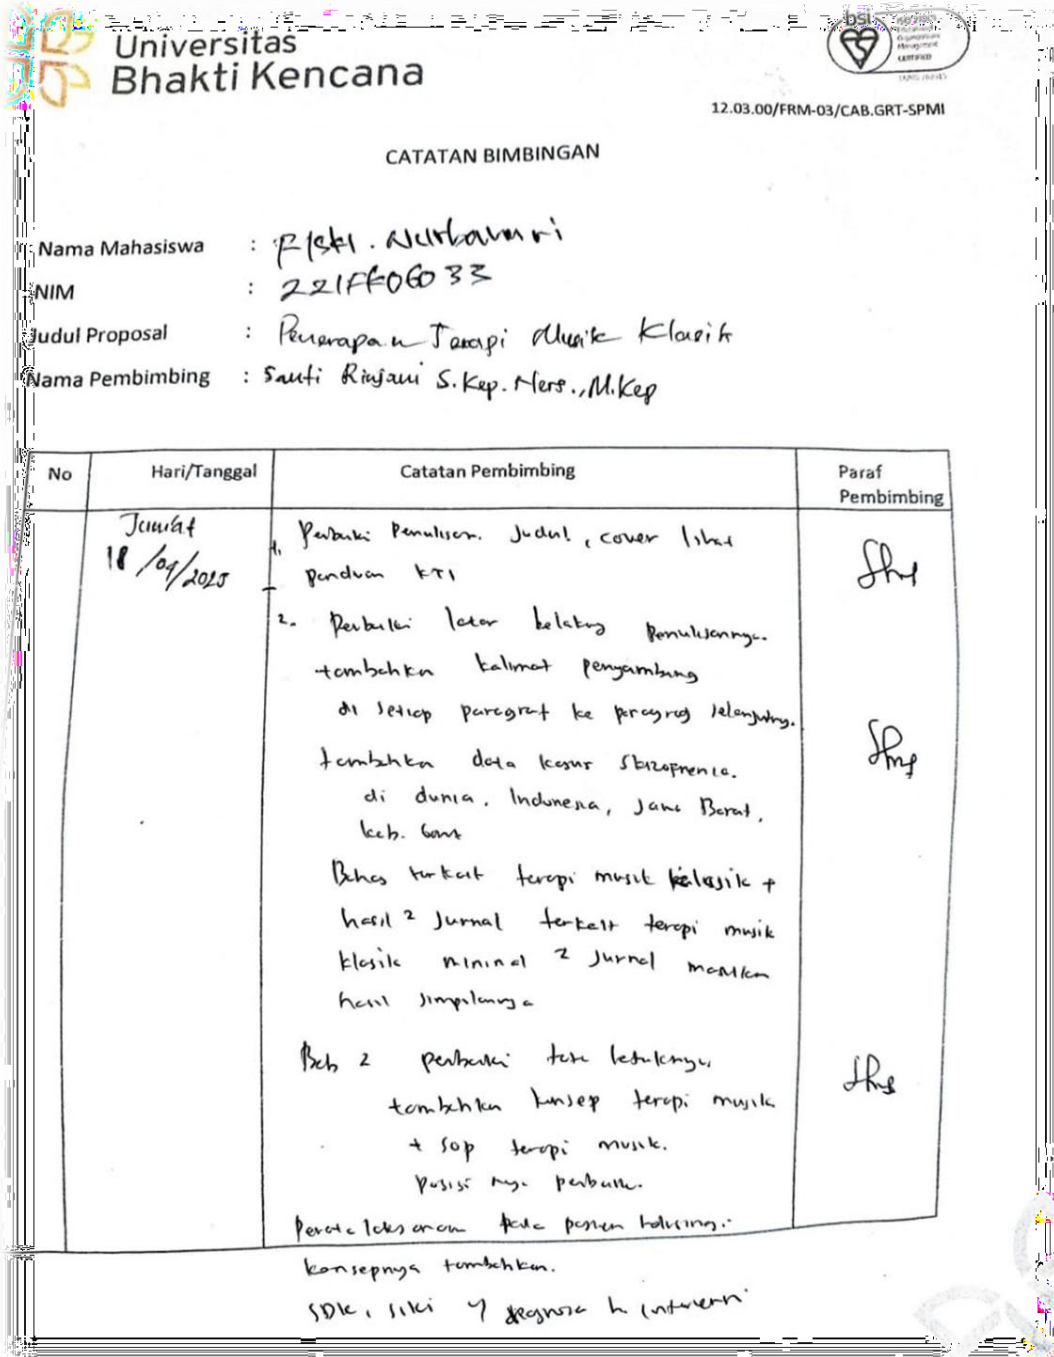 Universitas
Bhakti Kencana
bsi.
12.03.00/FRM-03/CAB.GRT-SPMI
CATATAN BIMBINGAN
Nama Mahasiswa :
NIM : 221FK06033
Judul Proposal : Penerapan Terapi Musik Klasik
Nama Pembimbing : Santi Rinjani S.Kep. Ners., M.Kep
No Hari/Tanggal Catatan Pembimbing Paraf
Pembimbing
Jum'at
18/04/2025
1. Perbaiki Penulisan Judul, cover lihat
panduan KTI
2. Perbaiki latar belakang Penulisannya.
tambahkan kalimat penyambung
di setiap paragraf ke paragraf selanjutnya.
tambahkan data kasus skizofrenia.
di dunia, Indonesia, Jawa Barat,
kab. Garut
Bahas terkait terapi musik klasik +
hasil 2 Jurnal terkait terapi musik
klasik minimal 2 Jurnal masukan
hasil simpulannya
Bab 2 perbaiki tata letaknya,
tambahkan konsep terapi musik
+ SOP terapi musik.
Posisi nya perbaiki.
pada pasien halusinasi
konsepnya tambahkan.
SDKI, SIKI